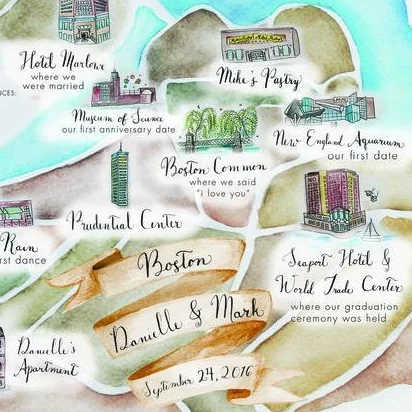 Hotel Marlowe
where we
were married
NCES:
Mike's Pastry
Museum of Science
our first anniversary date
New England Aquarium
our first date
Boston Common
where we said
"i love you"
Prudential Center
Rain
rst dance
Seaport Hotel &
World Trade Center
where our graduation
ceremony was held
Boston
Danielle & Mark
September 24, 2016
Danielle's
Apartment